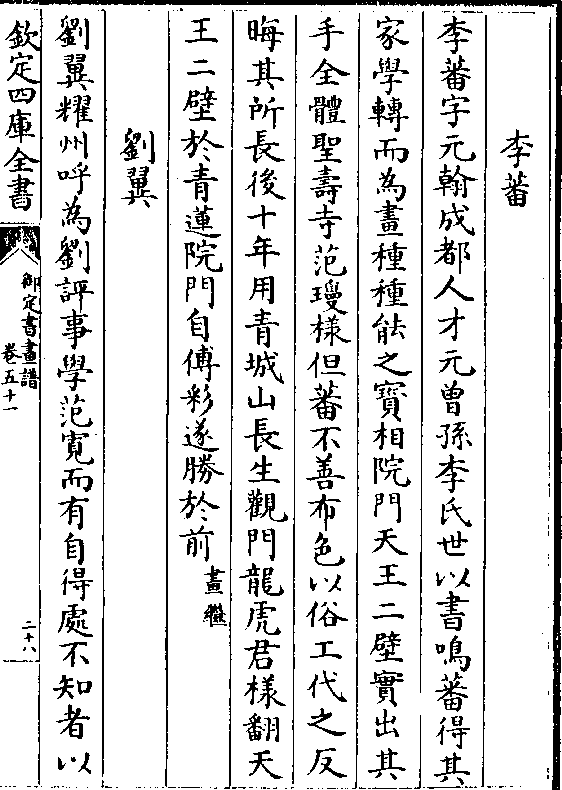 李蕃
李蕃字元翰成都人才元曾孫李氏世以書鳴蕃得其
家學轉而為畫種種能之寳相院門天王二壁實出其
手全體聖壽寺范瓊様但蕃不善布色以俗工代之反
晦其所長後十年用青城山長生觀門龍虎君様翻天
王二壁於青蓮院門自傅彩遂勝於前畫繼
劉翼
劉翼耀州呼為劉評事學范寛而有自得處不知者以
欽定四庫全書
御定書畫譜
卷五十一
二十八